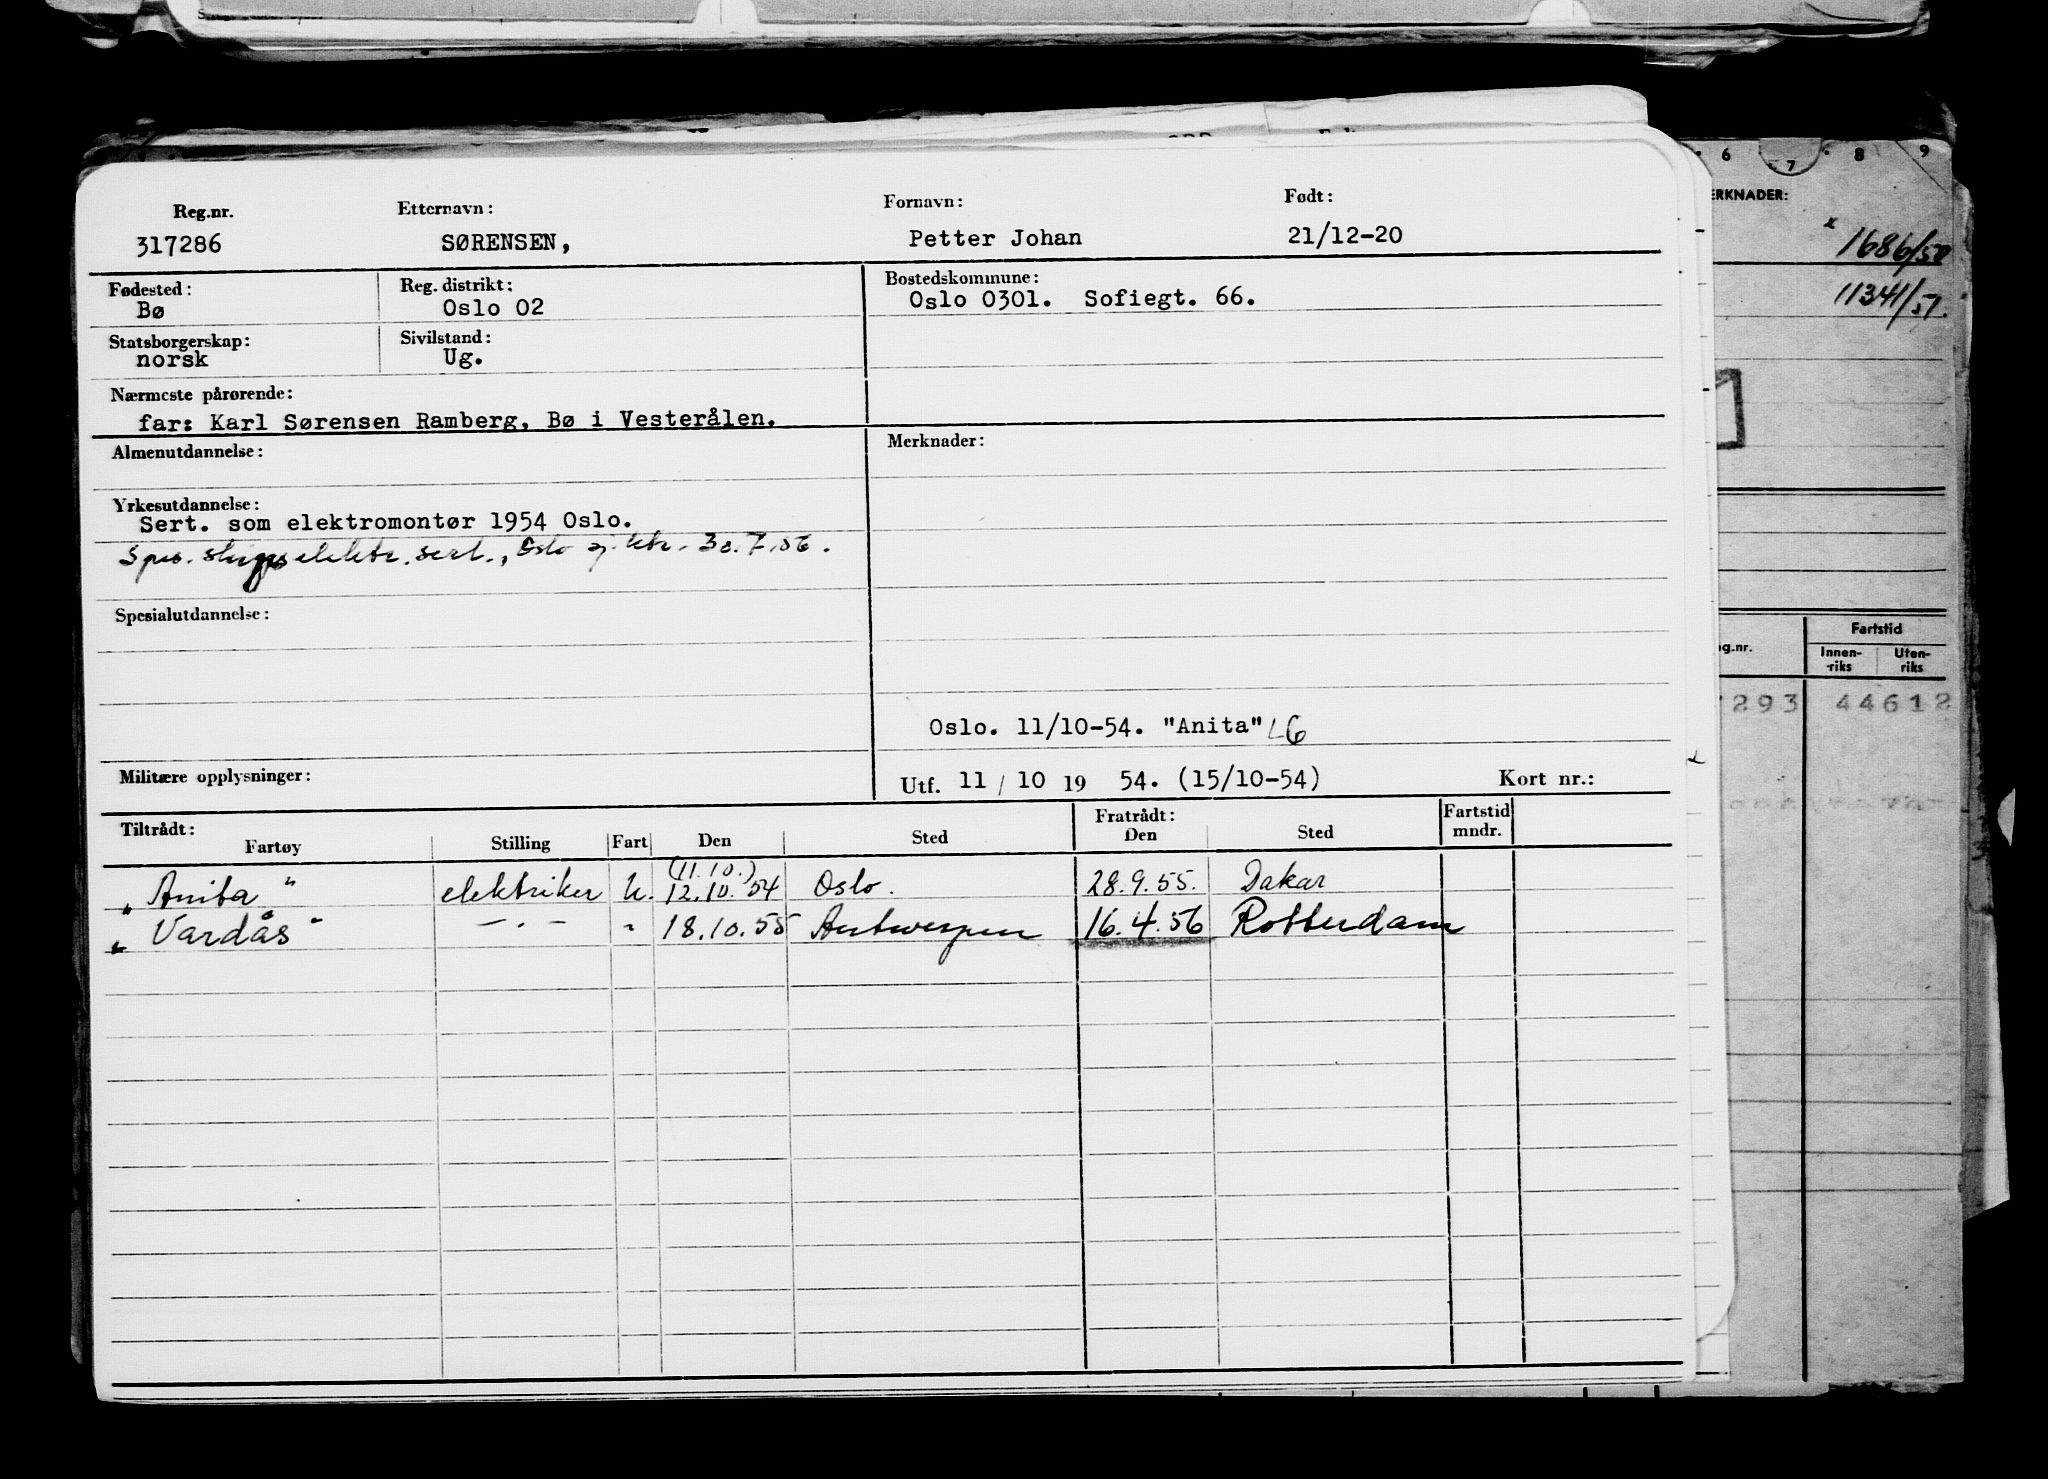 Reg.nr. Etternavn: Fornavn: Født:
317286 SØRENSEN, Petter Johan 21/12-20
Fødested: Reg. distrikt: Bostedskommune:
Bø Oslo 02 Oslo 0301. Sofiegt. 66.
Statsborgerskap: Sivilstand:
norsk Ug.
Nærmeste pårørende:
far: Karl Sørensen Ramberg, Bø i Vesterålen.
Almenutdannelse: Merknader:
Yrkesutdannelse:
Sert. som elektromontør 1954 Oslo.
Spes. skipselektr. sert., Oslo 30.7.56.
Spesialutdannelse:
Oslo. 11/10-54. "Anita" LG
Militære opplysninger: Utf. 11 / 10 19 54. (15/10-54) Kort nr.:
Tiltrådt: Fratrådt: Fartstid
Fartøy Stilling Fart Den Sted Den Sted mndr.
(11.10.)
„Anita" elektriker U. 12.10.54 Oslo. 28.9.55. Dakar
„Vardås" —.— " 18.10.55 Antwerpen 16.4.56 Rotterdam
6 7 8 9
ERKNADER:
x 1686/50
11341/51.
g.nr. Fartstid
Innen-riks Uten-riks
293 44612